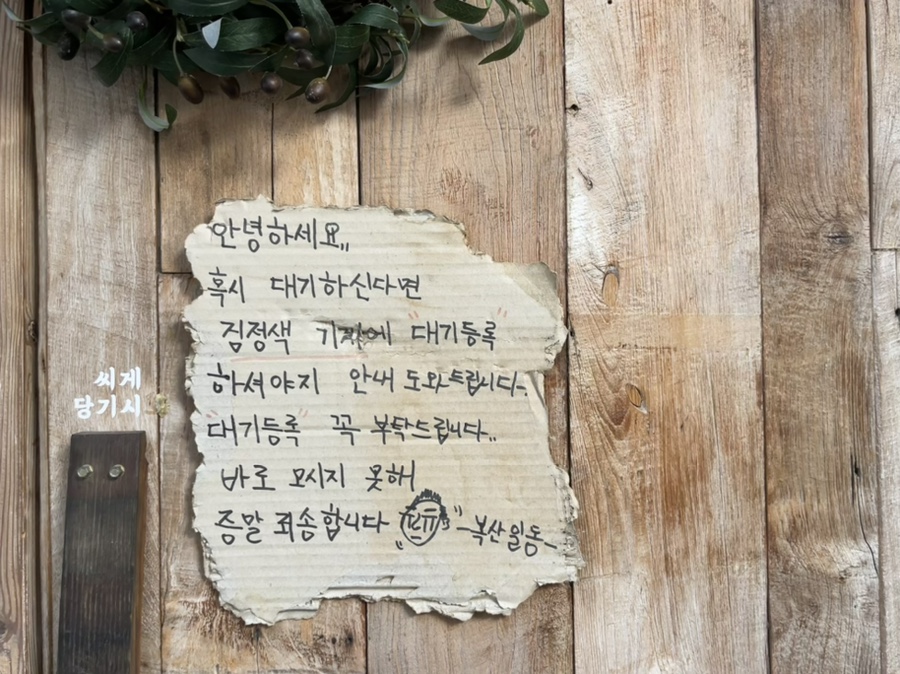 안녕하세요,,
혹시 대기하신다면
검정색 기계에 "대기등록"
하셔야지 안내 도와드립니다..
"대기등록" 꼭 부탁드립니다..
바로 모시지 못해
증말 죄송합니다 ㅠㅠ -복산일동-
씨게
당기시